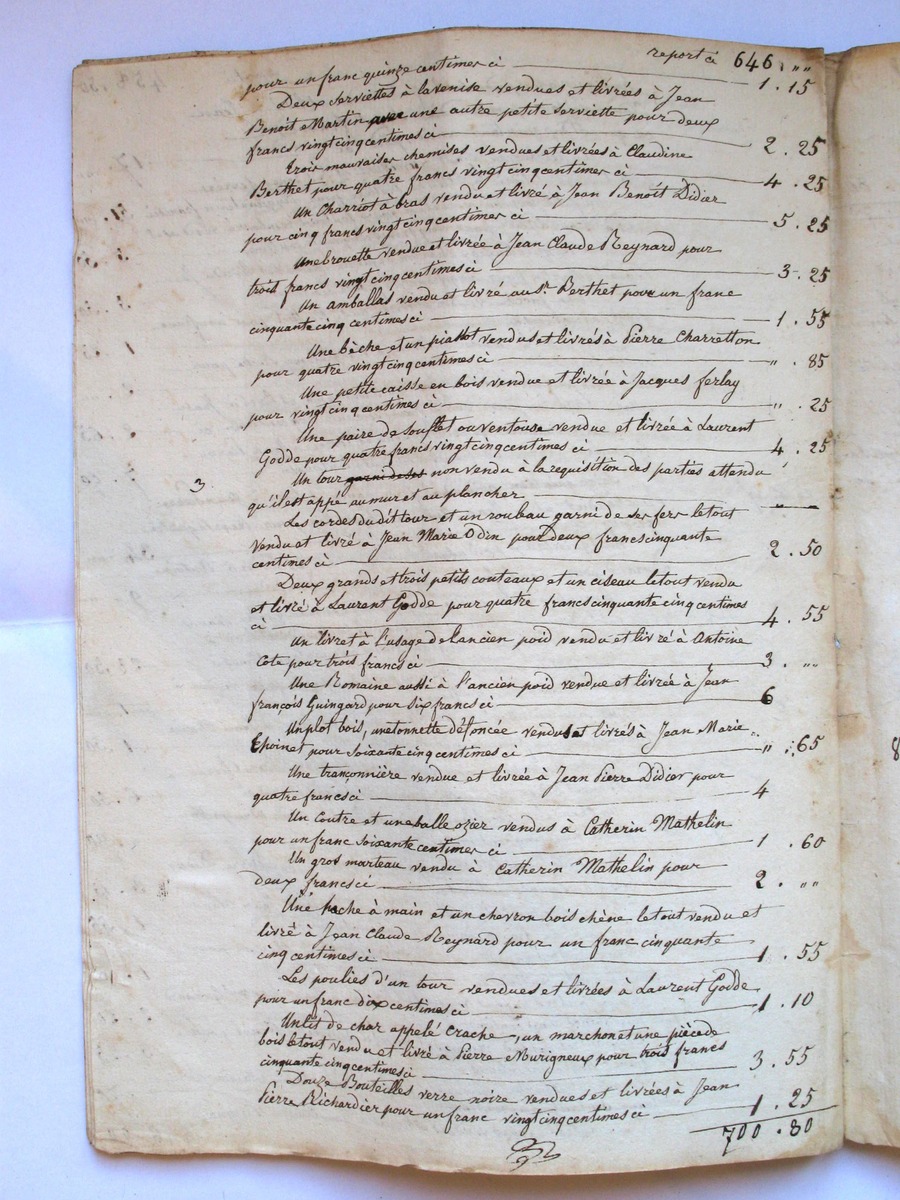 report ci 646 . ""
pour un franc quinze centimes ci 1 . 15
Deux serviettes à la venise vendues et livrées à Jean
Benoit Martin avec une autre petite serviette pour deux
francs vingt cinq centimes ci 2 . 25
trois mauvaises chemises vendues et livrées à Claudine
Berthet pour quatre francs vingt cinq centimes ci 4 . 25
Un Charriot à bras vendu et livré à Jean Benoît Didier
pour cinq francs vingt cinq centimes ci 5 . 25
Une brouette vendue et livrée à Jean Claude Reynard pour
trois francs vingt cinq centimes ci 3 . 25
Un amballas vendu et livré au Sr. Berthet pour un franc
cinquante cinq centimes ci 1 . 55
Une bèche et un piallot vendus et livrés à Pierre Charretton
pour quatre vingt cinq centimes ci " . 85
Une petite caisse en bois vendue et livrée à Jacques ferlay
pour vingt cinq centimes ci " . 25
Une paire de soufflet ou ventouse vendue et livrée à Laurent
Godde pour quatre francs vingt cinq centimes ci 4 . 25
Un tour garni de ses non vendu à la requisition des parties attendu
3 qu'il est appé au mur et au plancher "
Les cordes du dit tour et un rouleau garni de ses fers le tout
vendu et livré à Jean Marie Odin pour deux francs cinquante
centimes ci 2 . 50
Deux grands et trois petits couteaux et un ciseau le tout vendu
et livré à Laurent Godde pour quatre francs cinquante cinq centimes
ci 4 . 55
Un livret à l'usage de l'ancien poid vendu et livré à Antoine
Cote pour trois francs ci 3 . ""
Une Romaine aussi à l'ancien poid vendue et livrée à Jean
françois Guingard pour six francs ci 6
Un plot bois, une tonnette défoncée vendus et livrés à Jean Marie
Epoinet pour soixante cinq centimes ci " . 65
Une tranconnière vendue et livrée à Jean Pierre Didier pour
quatre francs ci 4
Un Coutre et une balle ozier vendus à Catherin Mathelin
pour un franc soixante centimes ci 1 . 60
Un gros marteau vendu à Catherin Mathelin pour
deux francs ci 2 . ""
Une hache à main et un chevron bois chène le tout vendu et
livré à Jean Claude Reynard pour un franc cinquante
cinq centimes ci 1 . 55
Les poulies d'un tour vendues et livrées à Laurent Godde
pour un franc dix centimes ci 1 . 10
Un lit de char appelé Crache, un marchon et une pièce de
bois le tout vendu et livré à Pierre Murigneux pour trois francs
cinquante cinq centimes ci 3 . 55
Douze Bouteilles verre noire vendues et livrées à Jean
Pierre Richardier pour un franc vingt cinq centimes ci 1 . 25
700 . 80